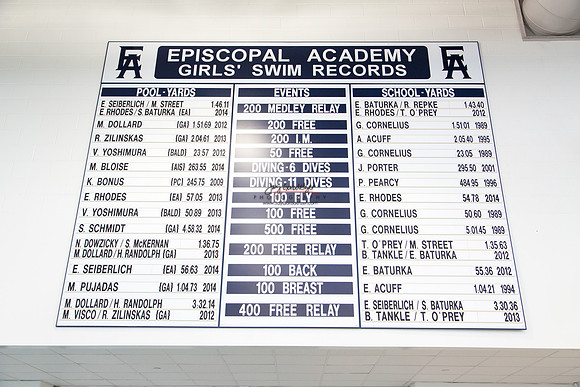 EA EPISCOPAL ACADEMY EA
GIRLS' SWIM RECORDS
POOL-YARDS EVENTS SCHOOL-YARDS
E. SEIBERLICH / M. STREET 1.46.11 200 MEDLEY RELAY E. BATURKA / R. REPKE 1.43.40
E. RHODES / S. BATURKA (EA) 2014 E. RHODES / T. O'PREY 2012
M. DOLLARD (GA) 1.51.69 2012 200 FREE G. CORNELIUS 1.51.01 1989
R. ZILINSKAS (GA) 2.04.61 2013 200 I.M. A. ACUFF 2.05.40 1995
V. YOSHIMURA (BALD) 23.57 2012 50 FREE G. CORNELIUS 23.05 1989
M. BLOISE (AIS) 263.55 2014 DIVING-6 DIVES J. PORTER 295.50 2001
K. BONUS (PC) 245.75 2009 DIVING-11 DIVES P. PEARCY 484.95 1996
E. RHODES (EA) 57.05 2013 100 FLY E. RHODES 54.78 2014
V. YOSHIMURA (BALD) 50.89 2013 100 FREE G. CORNELIUS 50.60 1989
S. SCHMIDT (GA) 4.58.32 2014 500 FREE G. CORNELIUS 5.01.45 1989
N. DOWZICKY / S. McKERNAN 1.36.75 200 FREE RELAY T. O'PREY / M. STREET 1.35.63
M. DOLLARD / H. RANDOLPH (GA) 2013 B. TANKLE / E. BATURKA 2012
E. SEIBERLICH (EA) 56.63 2014 100 BACK E. BATURKA 55.36 2012
M. PUJADAS (GA) 1.04.73 2014 100 BREAST E. ACUFF 1.04.21 1994
M. DOLLARD / H. RANDOLPH 3.32.14 400 FREE RELAY E. SEIBERLICH / S. BATURKA 3.30.36
M. VISCO / R. ZILINSKAS (GA) 2012 B. TANKLE / T. O'PREY 2013